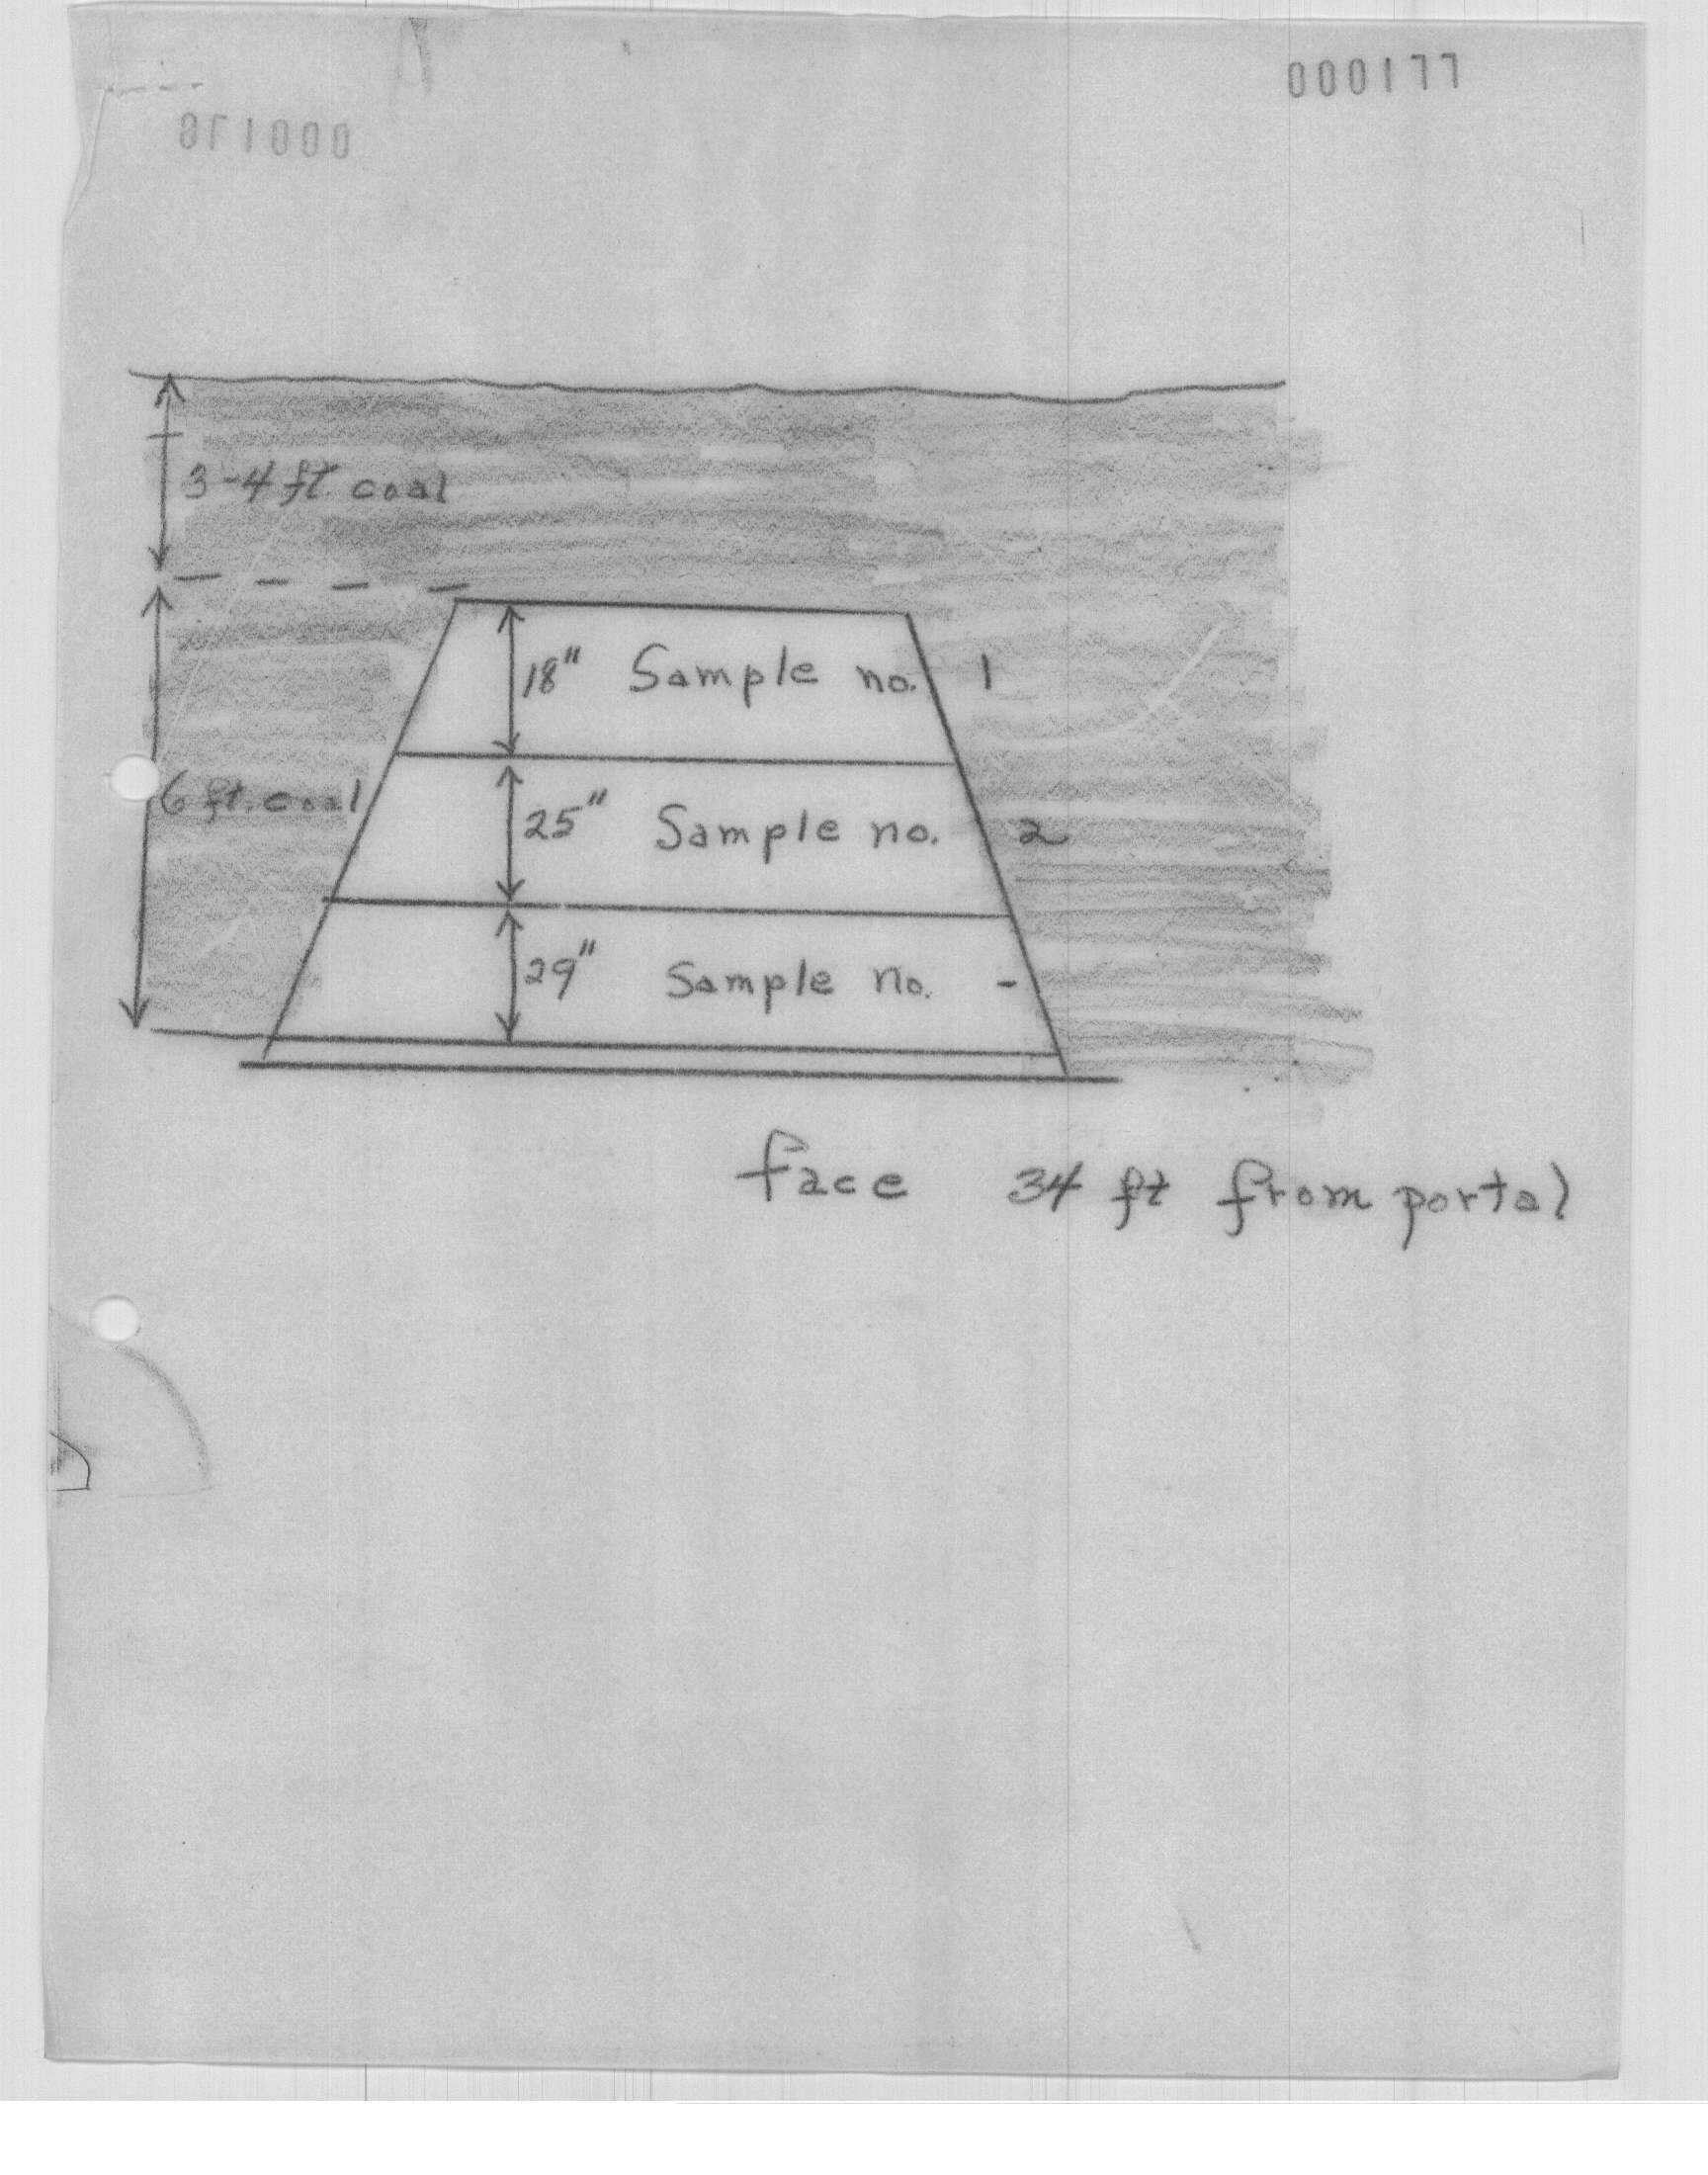 000177
000178
3-4 ft. coal
18" Sample no. 1
6 ft. coal
25" Sample no. 2
29" Sample no. -
face 34 ft from portal